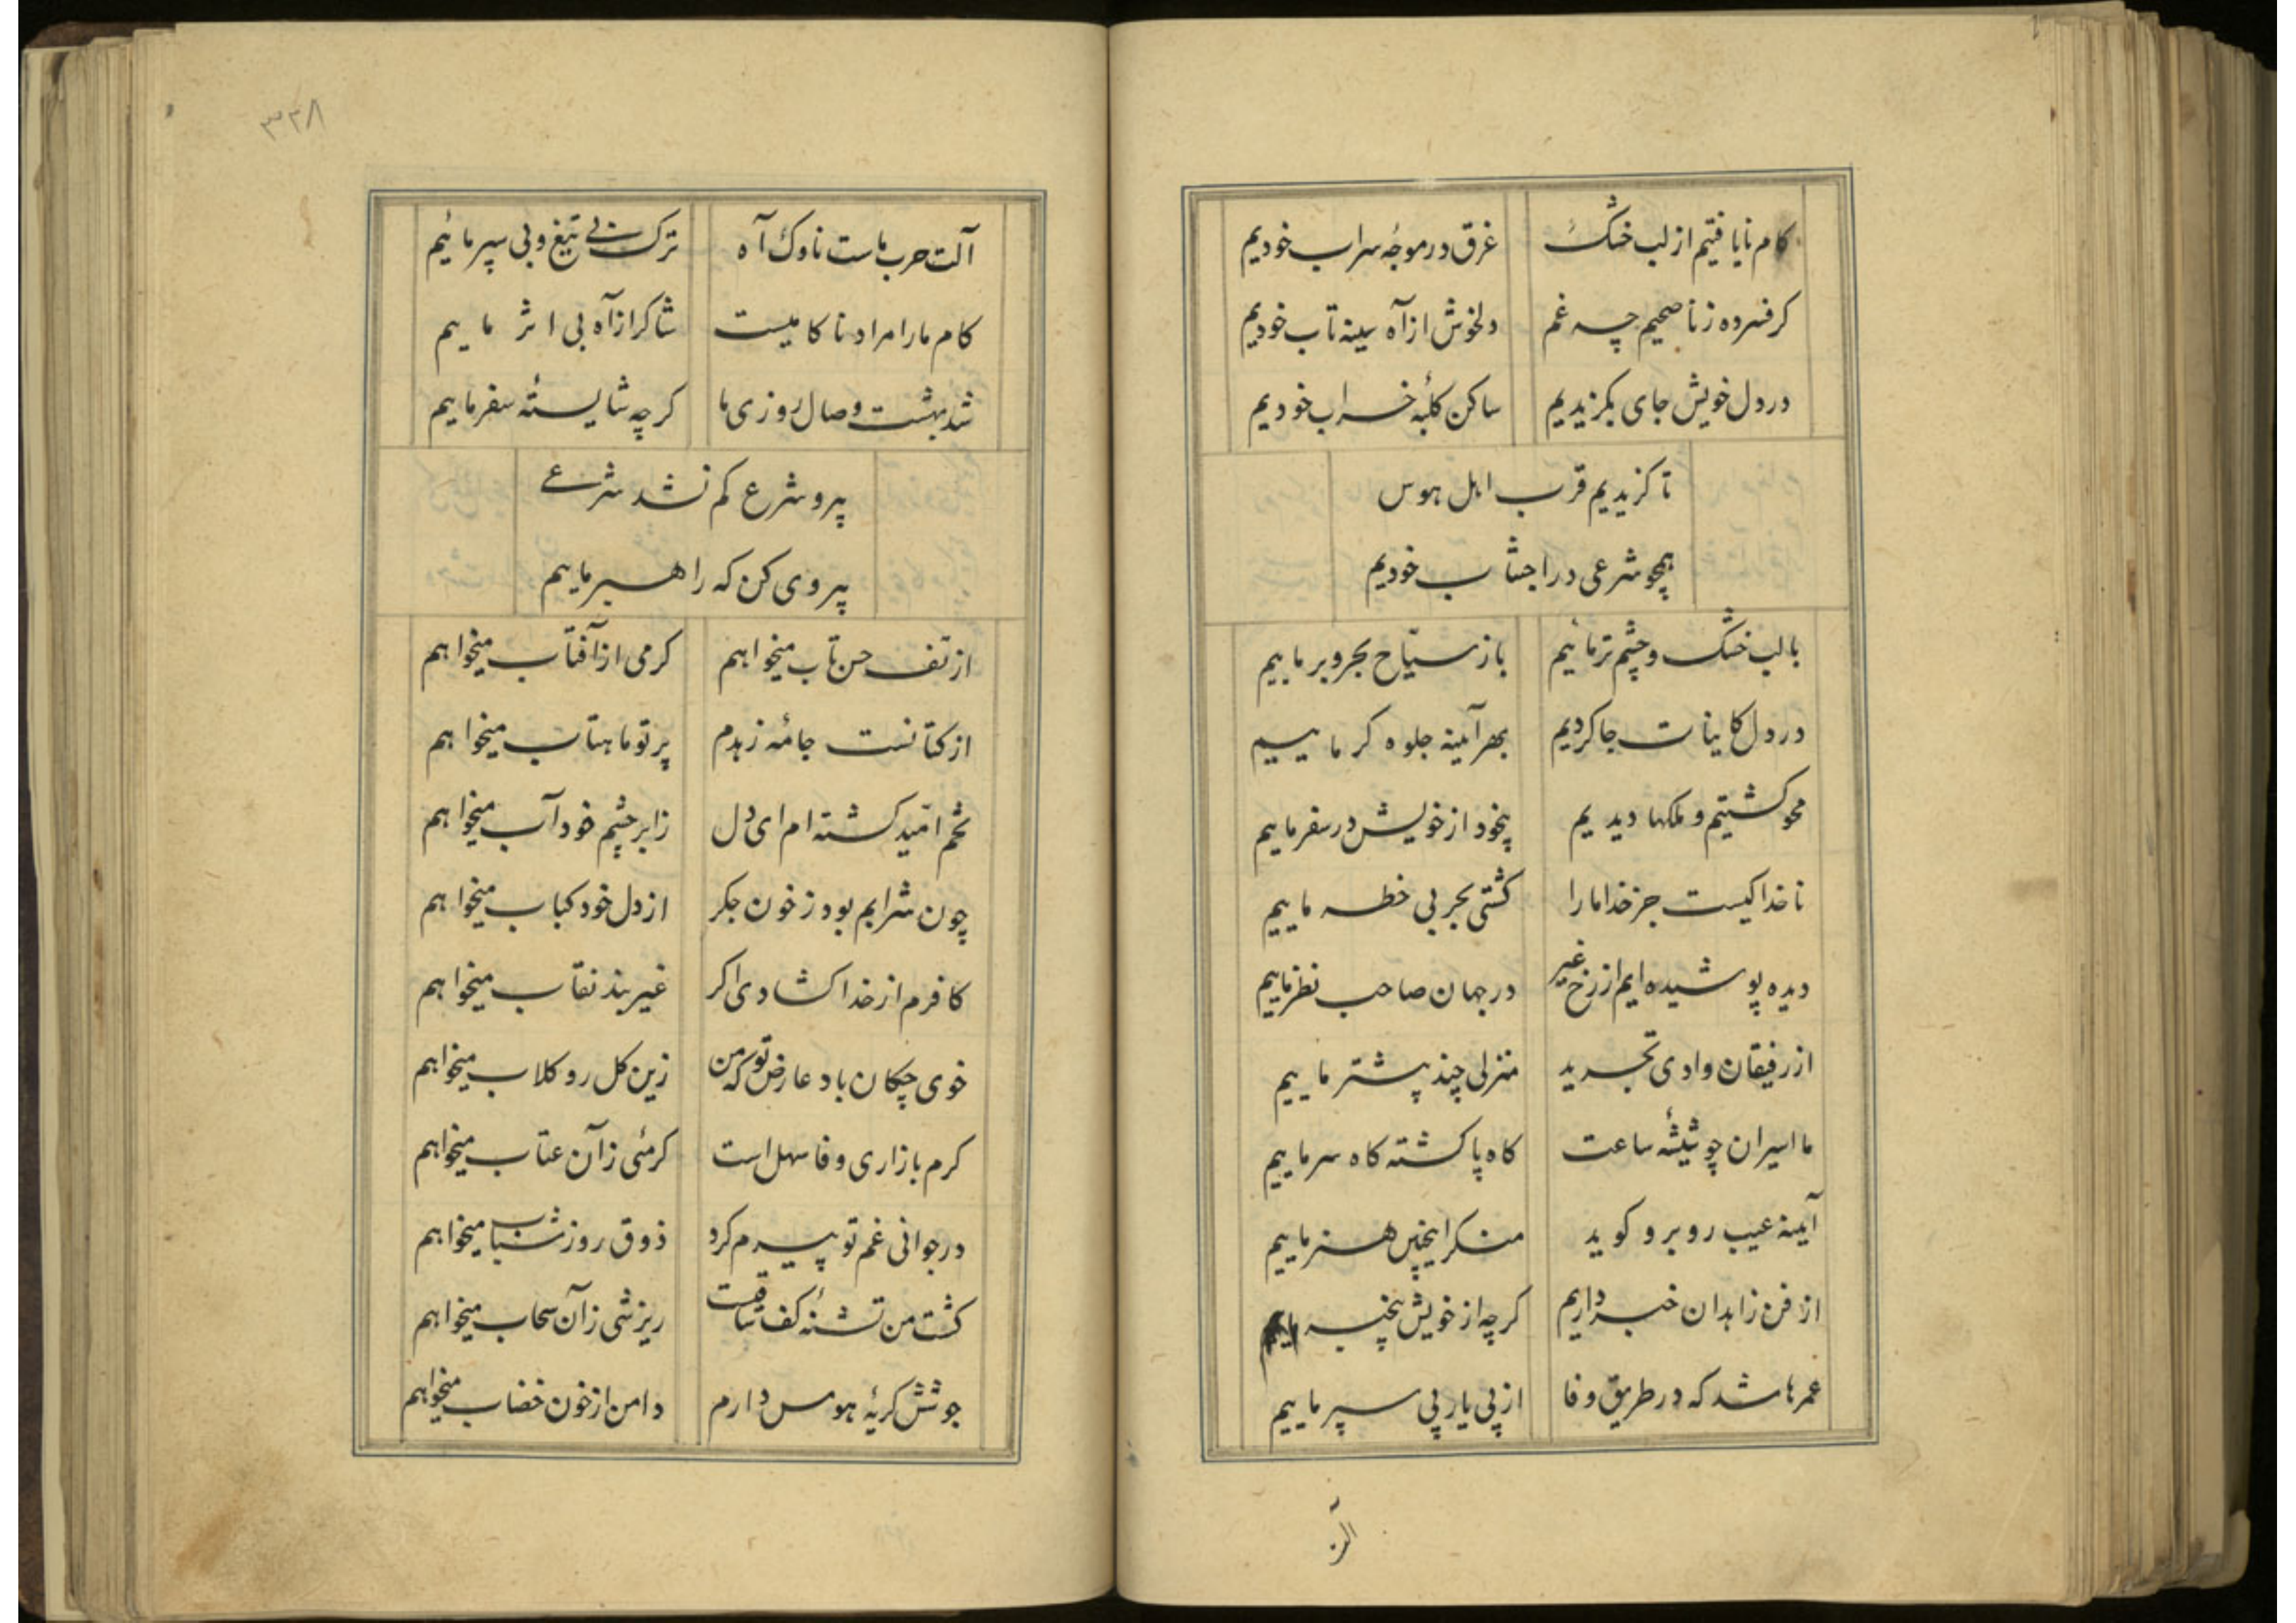 کام نایافتیم از لب خشک غرق در موجهٔ سراب خودیم
کر فسرده ز ناصحیم چه غم دلخوش از آه سینه تاب خودیم
در دل خویش جای بکزیدیم ساکن کلبهٔ خراب خودیم
تا کزیدیم قرب اهل هوس
همچو شرعی در اجتناب خودیم
با لب خشک و چشم تر مائیم باز سیّاح بحر و بر ماییم
در دل کاینات جا کردیم بهر آینه جلوه کر ماییم
محو کشتیم و ملکها دیدیم بیخود از خویش در سفر ماییم
ناخدا کیست جز خدا ما را کشتی بحر بی خطر ماییم
دیده پوشیده ایم از رخ غیر در جهان صاحب نظر ماییم
از رفیقان وادی تجرید منزلی چند پیشتر ماییم
ما اسیران چو شیشهٔ ساعت کاه پا کشته کاه سر ماییم
آینه عیب روبرو کوید منکر اینچنین هنر ماییم
از فن زاهدان خبر داریم کرچه از خویش بیخبر ماییم
عمرها شد که در طریق وفا از پی یار پی سپر ماییم
الت
۳۳۸
آلت حرب ماست ناوک آه ترک بی تیغ و بی سپر مائیم
کام ما را مراد ناکامیست شاکر از آه بی اثر ماییم
شد بهشت وصال روزی ما کرچه شایستهٔ سقر ماییم
پیرو شرع کم نشد شرعی
پیروی کن که راهبر ماییم
از تف حسن تاب میخواهم کرمی از آفتاب میخواهم
از کتانست جامهٔ زهدم پرتو ماهتاب میخواهم
تخم امّید کشته ام ای دل ز ابر چشم خود آب میخواهم
چون شرابم بود ز خون جکر از دل خود کباب میخواهم
کافرم از خدا کشادی اکر غیر بند نقاب میخواهم
خوی چکان باد عارض تو که من زین کل رو کلاب میخواهم
کرم بازاری وفا سهل است کرمئی زآن عتاب میخواهم
در جوانی غم تو پیرم کرد ذوق روز شباب میخواهم
کشت من تشنهٔ کف ساقیست ریزشی زآن سحاب میخواهم
جوشش کریهٔ هوس دارم دامن از خون خضاب میخواهم